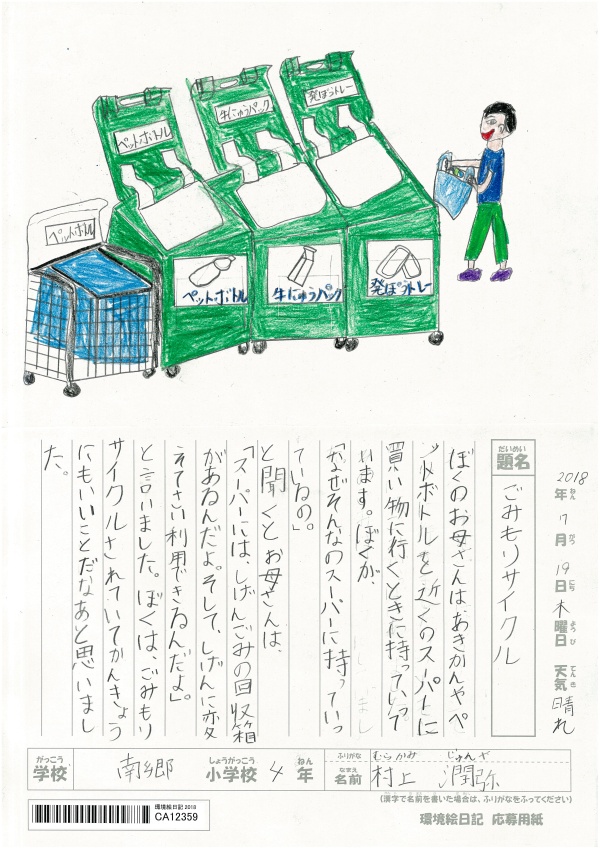 ペットボトル
牛にゅうパック
発ぽうトレー
ペットボトル
ペットボトル
牛にゅうパック
発ぽうトレー
2018年ねん 7月がつ 19日にち 木曜日ようび 天気てんき 晴れ
題名だいめい ごみもリサイクル
ぼくのお母さんは、あきかんやペ
ットボトルを近くのスーパーに
買い物に行くときに持っていって
います。ぼくが、
「なぜそんなのスーパーに持っていっ
ているの。」
と聞くとお母さんは、
「スーパーには、しげんごみの回収箱
があるんだよ。そして、しげんに変
えてさい利用できるんだよ。」
と言いました。ぼくは、ごみもリ
サイクルされていてかんきょう
にもいいことだなあと思いまし
た。
がっこう
学校 南郷 小学校しょうがっこう 4 年ねん
ふりがな むらかみ じゅんや
なまえ
名前 村上 潤弥
(漢字で名前を書いた場合は、ふりがなをふってください)
環境絵日記 2018
CA12359
環境絵日記 応募用紙